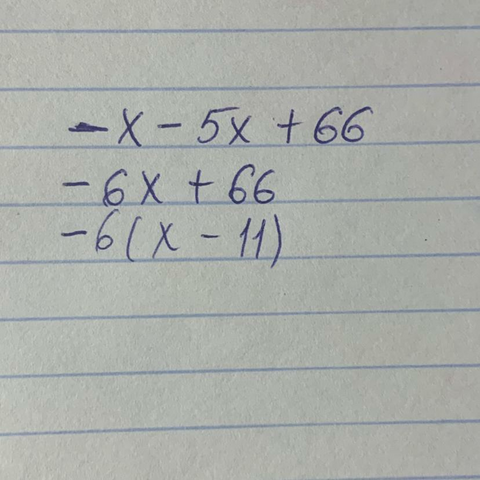 -x - 5x + 66
-6x + 66
-6(x - 11)